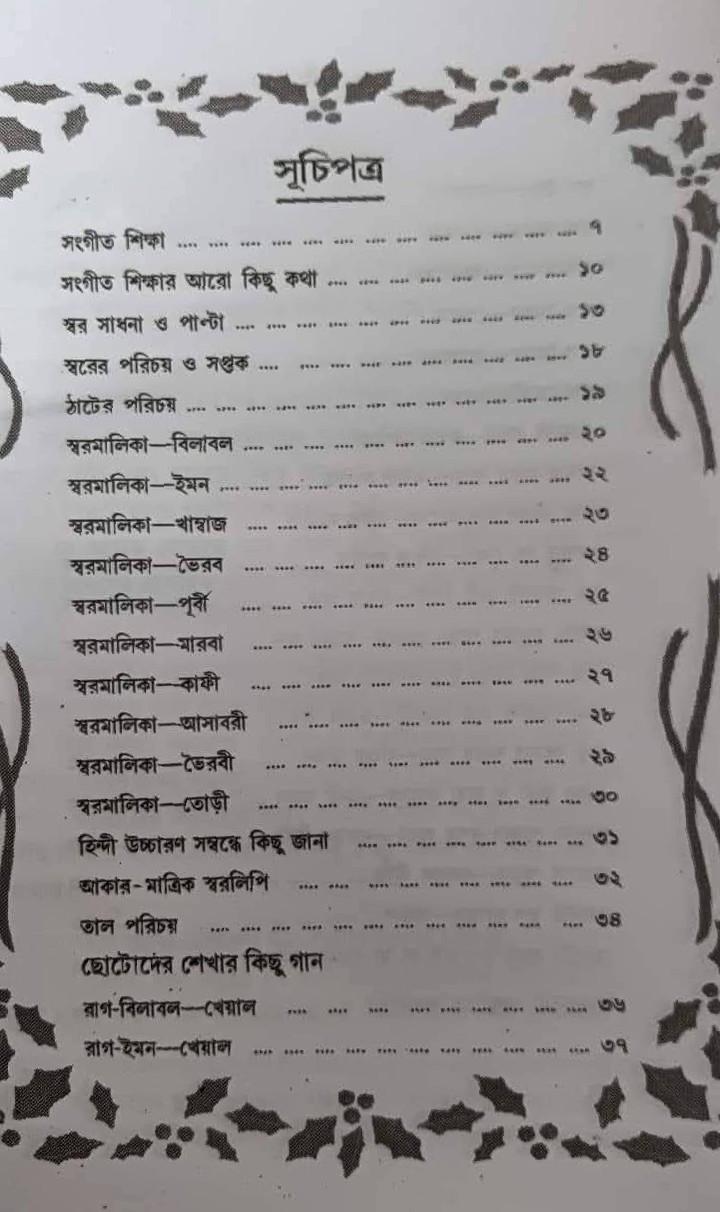 সূচিপত্র
সংগীত শিক্ষা .... .... .... .... .... .... .... .... .... .... .... .... .... ৭
সংগীত শিক্ষার আরো কিছু কথা .... .... .... .... .... .... .... .... ১০
স্বর সাধনা ও পাল্টা .... .... .... .... .... .... .... .... .... .... .... ১৩
স্বরের পরিচয় ও সপ্তক .... .... .... .... .... .... .... .... .... .... ১৮
ঠাটের পরিচয় .... .... .... .... .... .... .... .... .... .... .... .... .... ১৯
স্বরমালিকা—বিলাবল .... .... .... .... .... .... .... .... .... .... .... ২০
স্বরমালিকা—ইমন .... .... .... .... .... .... .... .... .... .... .... .... ২২
স্বরমালিকা—খাম্বাজ .... .... .... .... .... .... .... .... .... .... .... ২৩
স্বরমালিকা—ভৈরব .... .... .... .... .... .... .... .... .... .... .... ২৪
স্বরমালিকা—পূর্বী .... .... .... .... .... .... .... .... .... .... .... ২৫
স্বরমালিকা—মারবা .... .... .... .... .... .... .... .... .... .... .... ২৬
স্বরমালিকা—কাফী .... .... .... .... .... .... .... .... .... .... .... ২৭
স্বরমালিকা—আসাবরী .... .... .... .... .... .... .... .... .... .... ২৮
স্বরমালিকা—ভৈরবী .... .... .... .... .... .... .... .... .... .... ২৯
স্বরমালিকা—তোড়ী .... .... .... .... .... .... .... .... .... .... .... ৩০
হিন্দী উচ্চারণ সম্বন্ধে কিছু জানা .... .... .... .... .... .... .... .... ৩১
আকার-মাত্রিক স্বরলিপি .... .... .... .... .... .... .... .... .... .... ৩২
তাল পরিচয় .... .... .... .... .... .... .... .... .... .... .... .... .... ৩৪
ছোটোদের শেখার কিছু গান
রাগ-বিলাবল—খেয়াল .... .... .... .... .... .... .... .... .... .... ৩৬
রাগ-ইমন—খেয়াল .... .... .... .... .... .... .... .... .... .... .... ৩৭